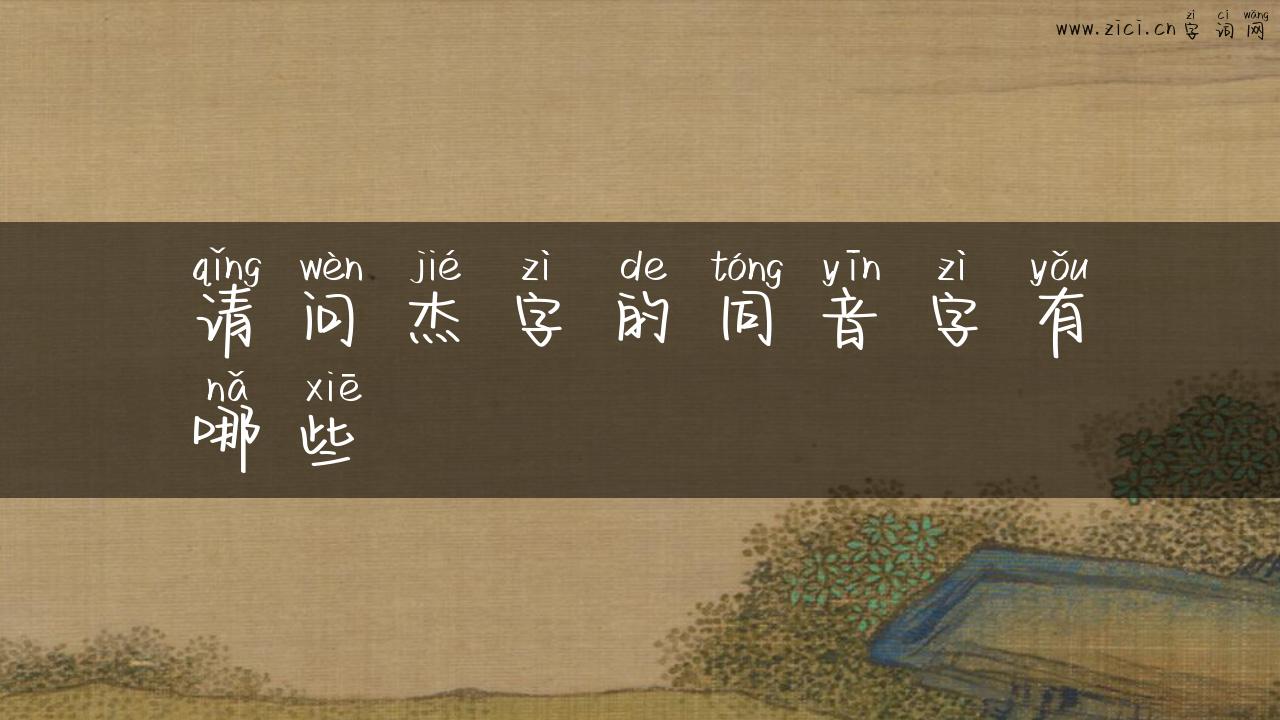 zì cí wǎng
www.zici.cn 字词网
qǐng wèn jié zì de tóng yīn zì yǒu
请问杰字的同音字有
nǎ xiē
哪些